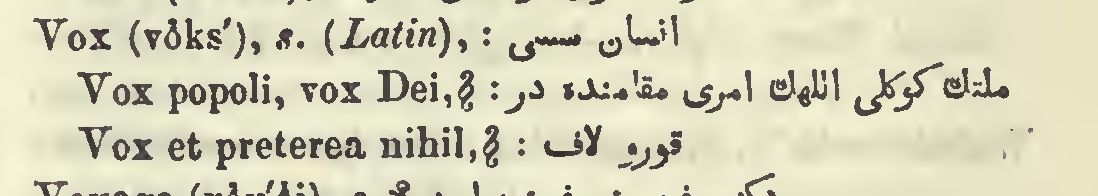 Vox (vŏks′), s. (Latin), : انسان سسی
Vox popoli, vox Dei, : ملتك كوكلی اللهك امری مقامنده در
Vox et preterea nihil, : قورو لاف